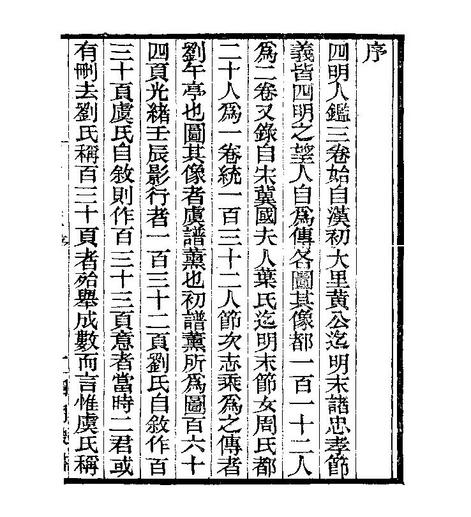 序
四明人鑑三卷始自漢初大里黃公迄明末諸忠孝節
義皆四明之望人自爲傳各圖其像都一百一十二人
爲二卷又錄自宋冀國夫人葉氏迄明末節女周氏都
二十人爲一卷統一百三十二人節次志乘爲之傳者
劉午亭也圖其像者虞譜薰也初譜薰所爲圖百六十
四頁光緒壬辰影行者一百三十二頁劉氏自敘作百
三十頁虞氏自敘則作百三十三頁意者當時二君或
有刪去劉氏稱百三十頁者殆舉成數而言惟虞氏稱